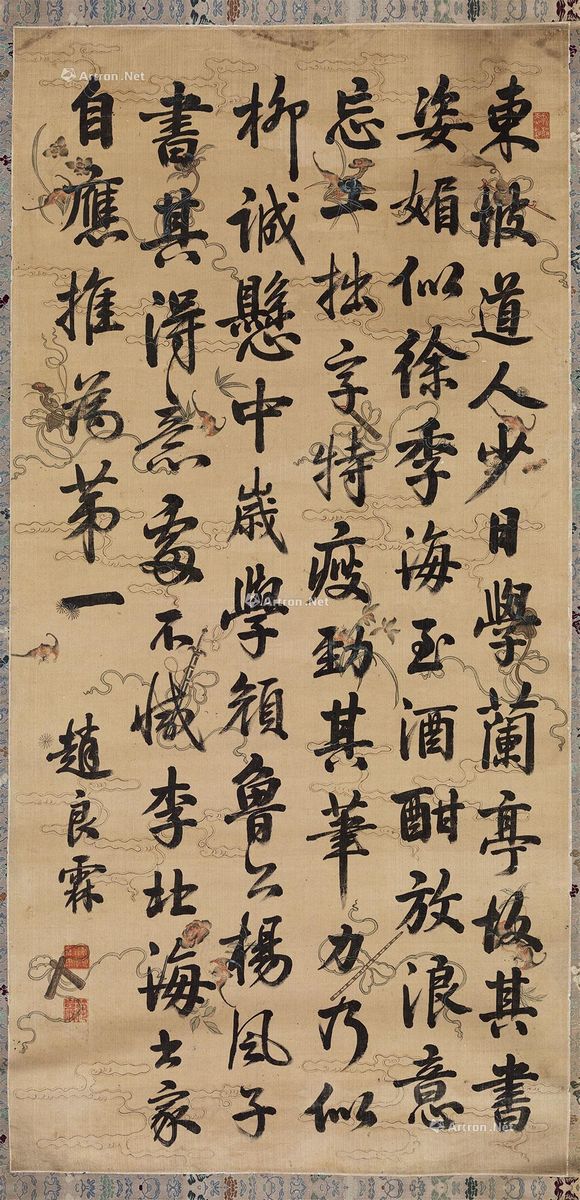 東坡道人少日學蘭亭故其書
姿媚似徐季海至酒酣放浪意
忘工拙字特瘦勁其筆力乃似
柳誠懸中歲學顏魯公楊風子
書其得意處不減李北海書家
自應推為第一
趙良霖
Artron.Net
Artron.Net
Artron.Net
Artron.Net